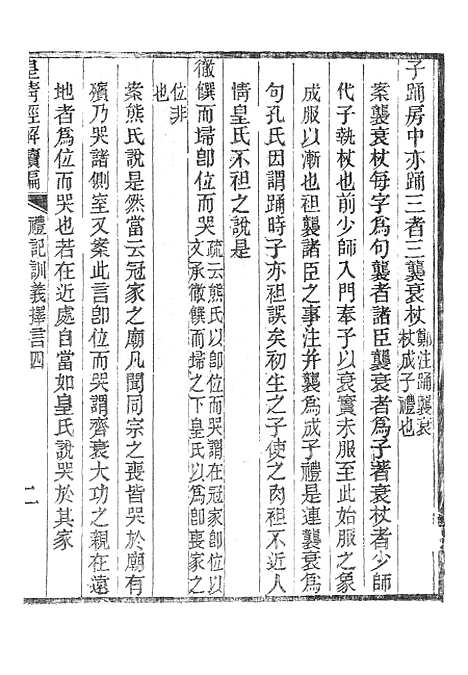 子踊房中亦踊三者三襲衰杖鄭注踊襲衰
杖成子禮也
案襲衰杖每字爲句襲者諸臣襲衰者爲子著衰杖者少師
代子執杖也前少師入門奉子以衰實未服至此始服之象
成服以漸也袒襲諸臣之事注并襲爲成子禮是連襲衰爲
句孔氏因謂踊時子亦袒誤矣初生之子使之肉袒不近人
情皇氏不袒之說是
徹饌而埽卽位而哭疏云熊氏以卽位而哭謂在冠家卽位以
文承徹饌而埽之下皇氏以爲卽喪家之
位非
也
案熊氏說是然當云冠家之廟凡聞同宗之喪皆哭於廟有
殯乃哭諸側室又案此言卽位而哭謂齊衰大功之親在遠
地者爲位而哭也若在近處自當如皇氏說哭於其家
皇淸經解續編
禮記訓義擇言四
二